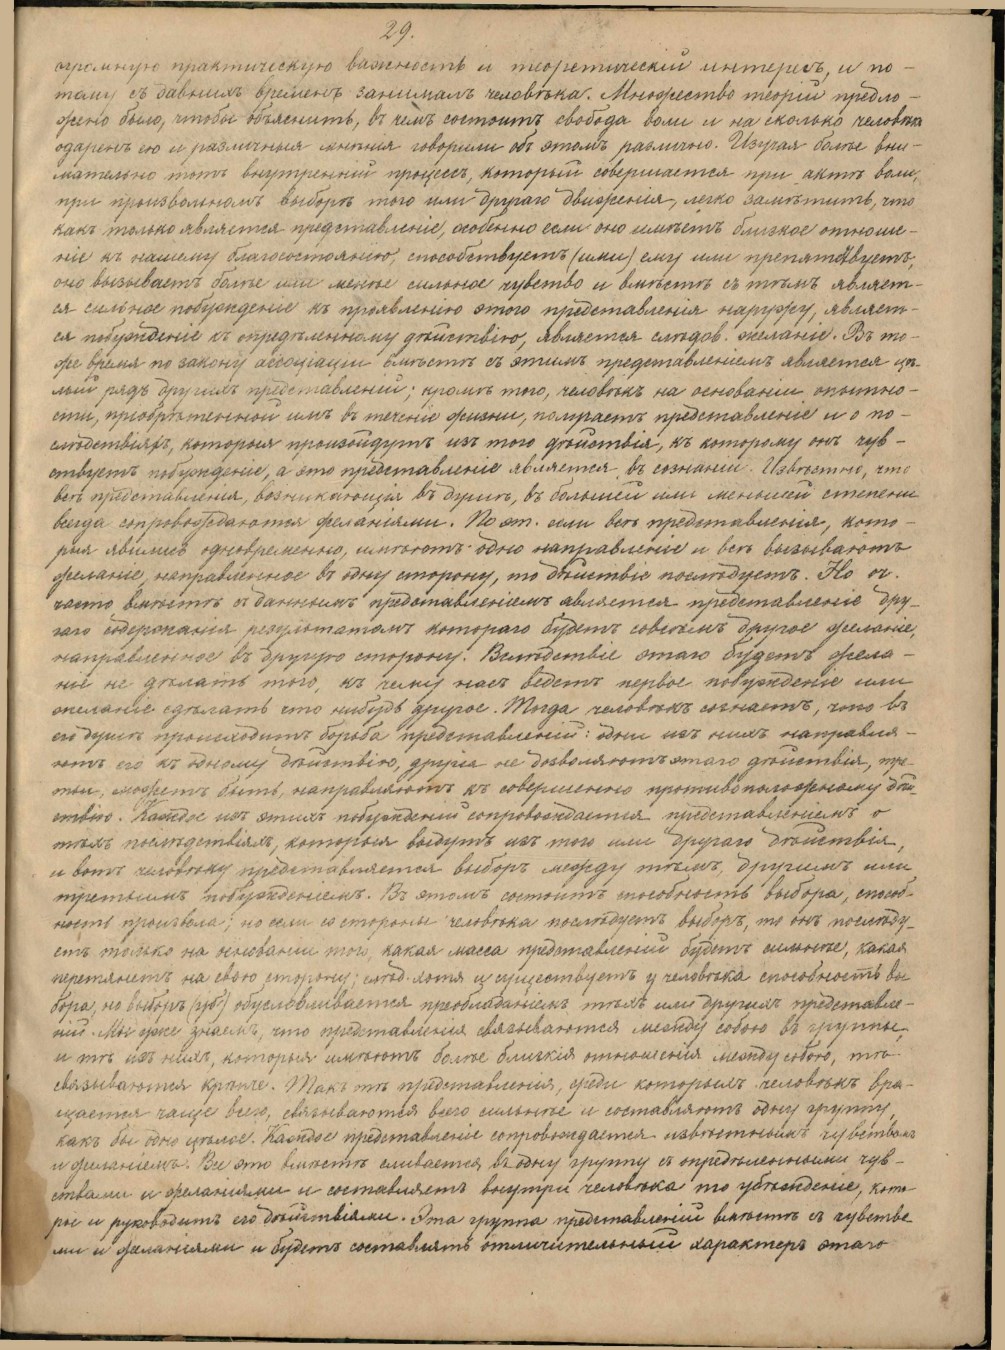 29.
огромную практическую важность и теоретическій интересъ, и по-
тому съ давнихъ временъ занималъ человѣка. Множество теорій предло-
жено было, чтобы объяснить, въ чемъ состоитъ свобода воли и на сколько человѣкъ
одаренъ ею и различныя мнѣнія говорили объ этомъ различно. Изучая болѣе вни-
мательно тотъ внутренній процессъ, который совершается при актѣ воли,
при произвольномъ выборѣ того или другаго движенія, легко замѣтить, что
какъ только является представленіе, особенно если оно имѣетъ близкое отноше-
ніе къ нашему благосостоянію, способствуетъ (или) ему или препятствуетъ,
оно вызываетъ болѣе или менѣе сильное чувство и вмѣстѣ съ тѣмъ являет-
ся сильное побужденіе къ проявленію этого представленія наружу, являет-
ся побужденіе къ опредѣленному дѣйствію, является слѣдов. желаніе. Въ то-
же время по закону ассоціаціи вмѣстѣ съ этимъ представленіемъ является цѣ-
лый рядъ другихъ представленій; кромѣ того, человѣкъ на основаніи опытно-
сти, пріобрѣтенной имъ въ теченіе жизни, получаетъ представленіе и о по-
слѣдствіяхъ, которыя произойдутъ изъ того дѣйствія, къ которому онъ чув-
ствуетъ побужденіе, а это представленіе является въ сознаніи. Извѣстно, что
всѣ представленія, возникающія въ душѣ, въ большей или меньшей степени
всегда сопровождаются желаніями. Поэт. если всѣ представленія, кото-
рыя явились одновременно, имѣютъ одно направленіе и всѣ вызываютъ
желаніе, направленное въ одну сторону, то дѣйствіе послѣдуетъ. Но оч.
часто вмѣстѣ съ даннымъ представленіемъ является представленіе дру-
гаго содержанія результатомъ котораго будетъ совсѣмъ другое желаніе,
направленное въ другую сторону. Вслѣдствіе этаго будетъ жела-
ніе не дѣлать того, къ чему насъ ведетъ первое побужденіе или
желаніе сдѣлать что нибудь другое. Тогда человѣкъ сознаетъ, что въ
его душѣ происходитъ борьба представленій: одни изъ нихъ направля-
ютъ его къ одному дѣйствію, другія не дозволяютъ этаго дѣйствія, тре-
тьи, можетъ быть, направляютъ къ совершенно противоположному дѣй-
ствію. Каждое изъ этихъ побужденій сопровождается представленіемъ о
тѣхъ послѣдствіяхъ, которыя выдутъ изъ того или другаго дѣйствія,
и вотъ человѣку представляется выборъ между тѣмъ, другимъ или
третьимъ побужденіемъ. Въ этомъ состоитъ способность выбора, способ-
ность произвола; но если со стороны человѣка послѣдуетъ выборъ, то онъ послѣду-
етъ только на основаніи того, какая масса представленій будетъ сильнѣе, какая
перетянетъ на свою сторону; слѣд. хотя и существуетъ у человѣка способность вы-
бора, но выборъ обусловливается преобладаніемъ тѣхъ или другихъ представле-
ній. Мы же знаемъ, что представленія связываются между собою въ группы,
и тѣ изъ нихъ, которыя имѣютъ болѣе близкія отношенія между собою, тѣ
связываются крѣпче. Такъ тѣ представленія, среди которыхъ человѣкъ вра-
щается чаще всего, связываются всего сильнѣе и составляютъ одну группу,
какъ бы одно цѣлое. Каждое представленіе сопровождается извѣстнымъ чувствомъ
и желаніемъ. Все это вмѣстѣ сливается въ одну группу съ опредѣленными чув-
ствами и желаніями и составляетъ внутри человѣка то убѣжденіе, кото-
рые и руководитъ его дѣйствіями. Эта группа представленій вмѣстѣ съ чувства
ми и желаніями и будетъ составлять отличительный характеръ этаго